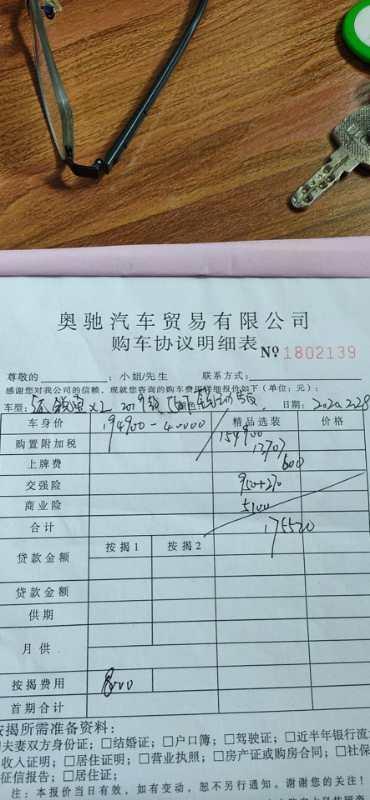 奥驰汽车贸易有限公司
购车协议明细表 № 1802139
尊敬的 ；小姐/先生 联系方式：
感谢您对我公司的信赖，现就您咨询的购车费用详细报价如下（单位：元）：
车型： 日期：2020.2.28
车身价 194900-40000 精品选装 价格
购置附加税 154900
13707
上牌费 600
交强险 950+270
商业险 5100
合计 175520
按揭1 按揭2
贷款金额
贷款金额
供期
月供
按揭费用 8000
首期合计
按揭所需准备资料：
夫妻双方身份证；□结婚证；□户口簿；□驾驶证；□近半年银行流
收入证明；□居住证明；□营业执照；□房产证或购房合同；□社保
征信报告；□居住证；
注：本报价当日有效，如有变动，恕不另行通知。谢谢您的关注！